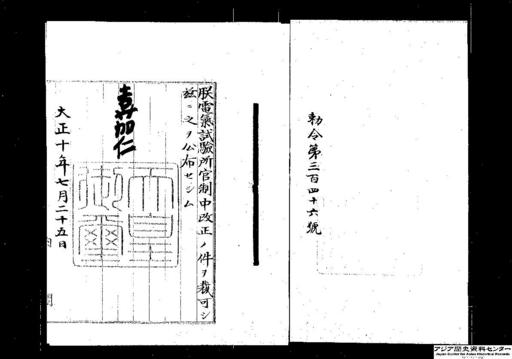 勅令第三百四十六號
朕電氣試驗所官制中改正ノ件ヲ裁可シ
茲ニ之ヲ公布セシム
嘉仁
天皇
御璽
大正十年七月二十五日
アジア歴史資料センター
Japan Center for Asian Historical Records